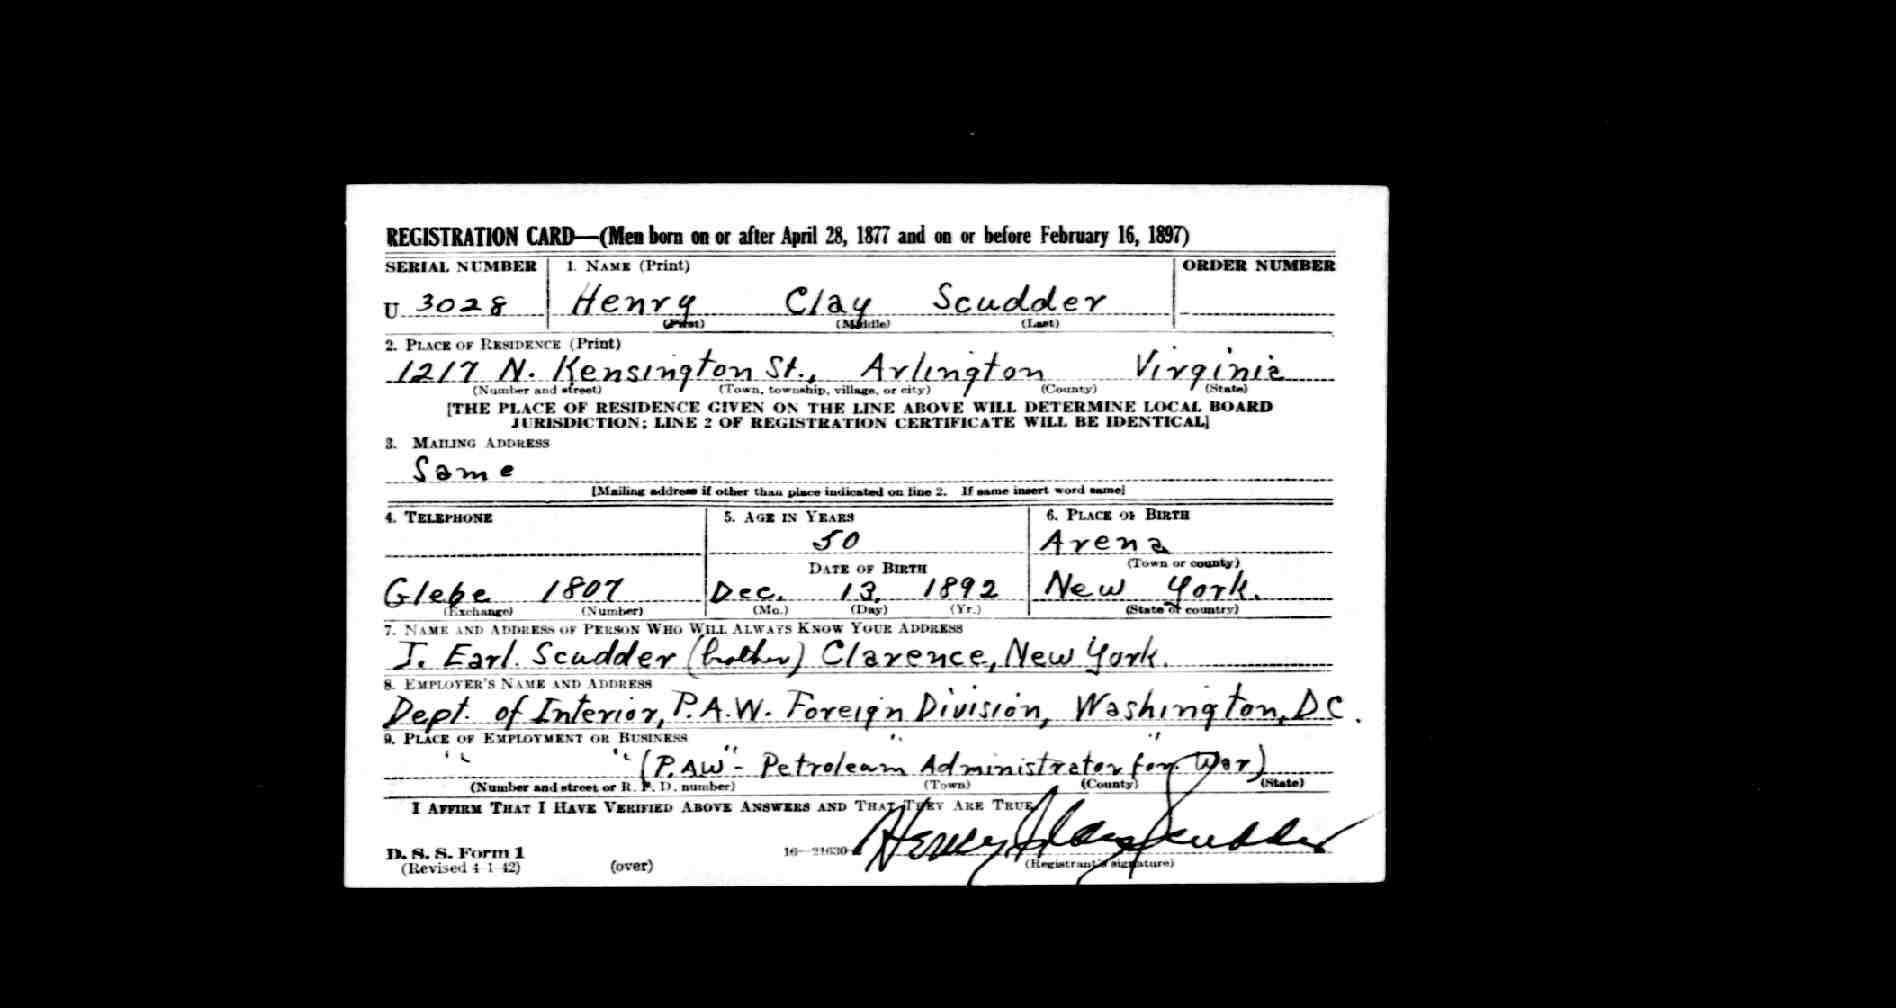 REGISTRATION CARD—(Men born on or after April 28, 1877 and on or before February 16, 1897)
SERIAL NUMBER 1. NAME (Print) ORDER NUMBER
U 3028 Henry Clay Scudder
(First) (Middle) (Last)
2. PLACE OF RESIDENCE (Print)
1217 N. Kensington St., Arlington Virginia
(Number and street) (Town, township, village, or city) (County) (State)
[THE PLACE OF RESIDENCE GIVEN ON THE LINE ABOVE WILL DETERMINE LOCAL BOARD
JURISDICTION; LINE 2 OF REGISTRATION CERTIFICATE WILL BE IDENTICAL]
3. MAILING ADDRESS
Same
[Mailing address if other than place indicated on line 2. If same insert word same]
4. TELEPHONE 5. AGE IN YEARS 6. PLACE OF BIRTH
50 Arena
DATE OF BIRTH (Town or county)
Glebe 1807 Dec. 13, 1892 New York.
(Exchange) (Number) (Mo.) (Day) (Yr.) (State or country)
7. NAME AND ADDRESS OF PERSON WHO WILL ALWAYS KNOW YOUR ADDRESS
J. Earl. Scudder (brother) Clarence, New York.
8. EMPLOYER'S NAME AND ADDRESS
Dept. of Interior, P.A.W. Foreign Division, Washington, D.C.
9. PLACE OF EMPLOYMENT OR BUSINESS
" " " "
(P.AW"- Petroleum Administrator for War)
(Number and street or R. F. D. number) (Town) (County) (State)
I AFFIRM THAT I HAVE VERIFIED ABOVE ANSWERS AND THAT THEY ARE TRUE.
Henry Clay Scudder
D. S. S. Form 1 16—21630-2
(Revised 4-1-42) (over) (Registrant's signature)